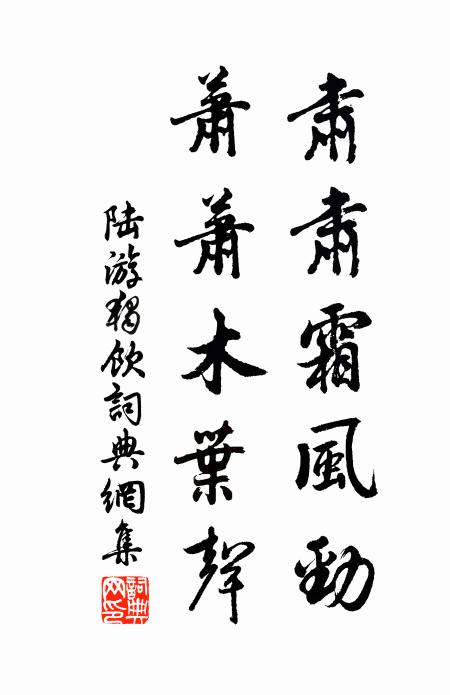 肅肅霜風勁
蕭蕭木葉聲
陸游獨飲詞典網集
詞典網印